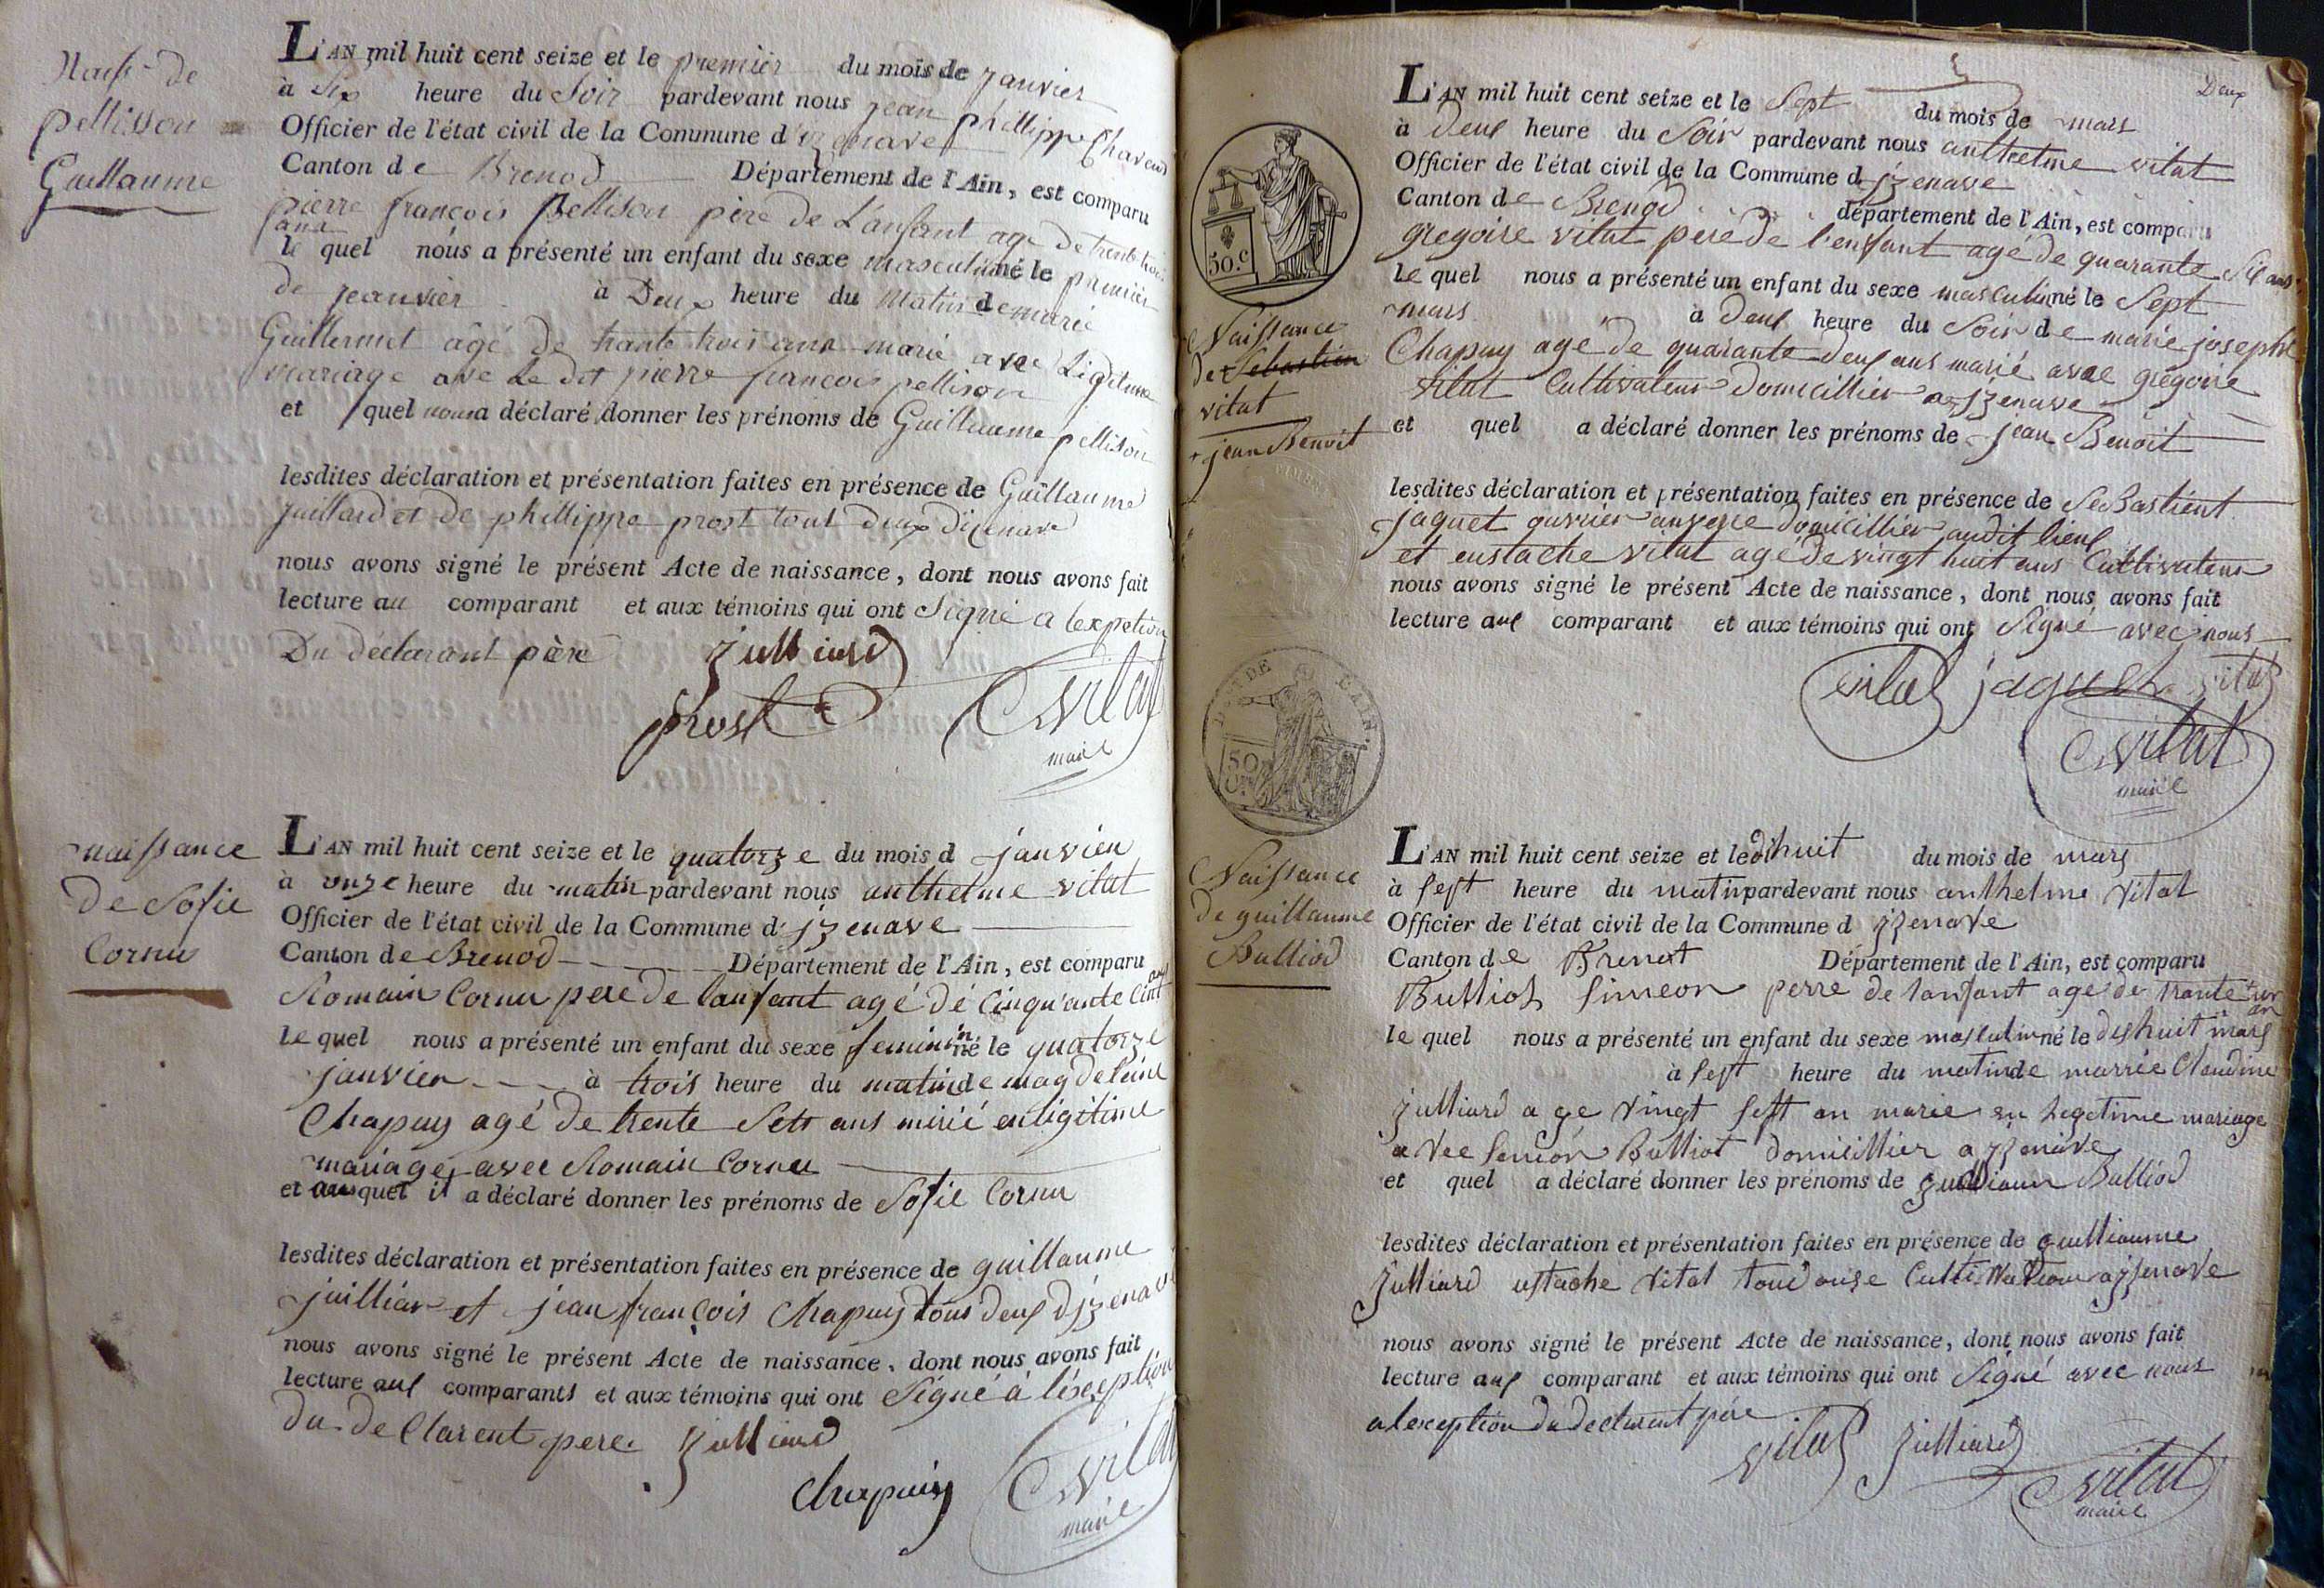 Naiss. de
pellisson
Guillaume
L'AN mil huit cent seize et le premier du mois de janvier
à Six heure du Soir pardevant nous jean phillippe Chavend
Officier de l'état civil de la Commune d'izenave
Canton de Brenod Département de l'Ain, est comparu
pierre françois pellison père de L'anfant agé de trente trois
ana
le quel nous a présenté un enfant du sexe masculin né le premier
de jeanvier à Deux heure du Matin de marie
Guillermet agé de trante trois ans marié avec Ligitime
mariage ave Le dit pierre françois pellison
et quel nous a déclaré donner les prénoms de Guillaume pellison
lesdites déclaration et présentation faites en présence de Guillaume
juillard et de phillippe prost tout deux dizenave
nous avons signé le présent Acte de naissance, dont nous avons fait
lecture au comparant et aux témoins qui ont Signé a lexpetion
Du déclarant père Julliard
prost Vital
maire
naissance
de Sofie
Cornu
L'AN mil huit cent seize et le quatorze du mois d janvier
à onze heure du matin pardevant nous anthelme vital
Officier de l'état civil de la Commune d'jzenave
Canton de Brenod Département de l'Ain, est comparu
Romain Cornu pere de lanfant agé dé Cinquante Cint
ans
le quel nous a présenté un enfant du sexe feminin né le quatorze
janvier à trois heure du matin de magdeleine
Chapuy agé de trente Sett ans mirié en ligitime
mariage avec Romain Cornu
et auquel il a déclaré donner les prénoms de Sofie Cornu
lesdites déclaration et présentation faites en présence de guillaume
juilliar et jean françois Chapuy tous deux djzenave
nous avons signé le présent Acte de naissance, dont nous avons fait
lecture aux comparants et aux témoins qui ont Signé à léxception
du declarent pere. Julliard
Chapuiy Vital
maire
Deux
50.c
Naissance
de Sebastien
vital
+ jean Benoit
L'AN mil huit cent seize et le Sept du mois de mars
à deux heure du Soir pardevant nous anthelme vital
Officier de l'état civil de la Commune d jzenave
Canton de Brenod département de l'Ain, est comparu
gregoire vital père de l'enfant agé de quarante Six ans
le quel nous a présenté un enfant du sexe masculin né le Sept
mars à deux heure du Soir de marie josephe
Chapuy agé de quarante deux ans marié avae grégoire
vital Cultivateur domicillier a jzenave
et quel a déclaré donner les prénoms de jean Benoit
lesdites déclaration et présentation faites en présence de SeBastient
jaquet ouvrier domicillier audit lieux
et eustache vital agé de vingt huit ans Cultivateur
nous avons signé le présent Acte de naissance, dont nous avons fait
lecture aux comparant et aux témoins qui ont Signé avec nous
vital jaquet vital
Vital
maire
DEPT DE L'AIN.
50
Naissance
de guillaume
Balliod
L'AN mil huit cent seize et le dihuit du mois de mars
à sept heure du matin pardevant nous anthelme Vital
Officier de l'état civil de la Commune d jzenave
Canton de Brenot Département de l'Ain, est comparu
Bulliot Simeon perre de lanfant age de trante un
an
le quel nous a présenté un enfant du sexe masculin né le dishuit mars
à sept heure du matin de marrie Claudine
Julliard age vingt sept an marie en Legetime mariage
avec Semeon Bulliot domicillier a jzenave
et quel a déclaré donner les prénoms de Bulliod
lesdites déclaration et présentation faites en présence de guilliaume
Julliard ustache Vital Cultivateur a jzenave
nous avons signé le présent Acte de naissance, dont nous avons fait
lecture aux comparant et aux témoins qui ont Signé avec nous
a lexception du declarent père
vital Julliard
Vital
maire